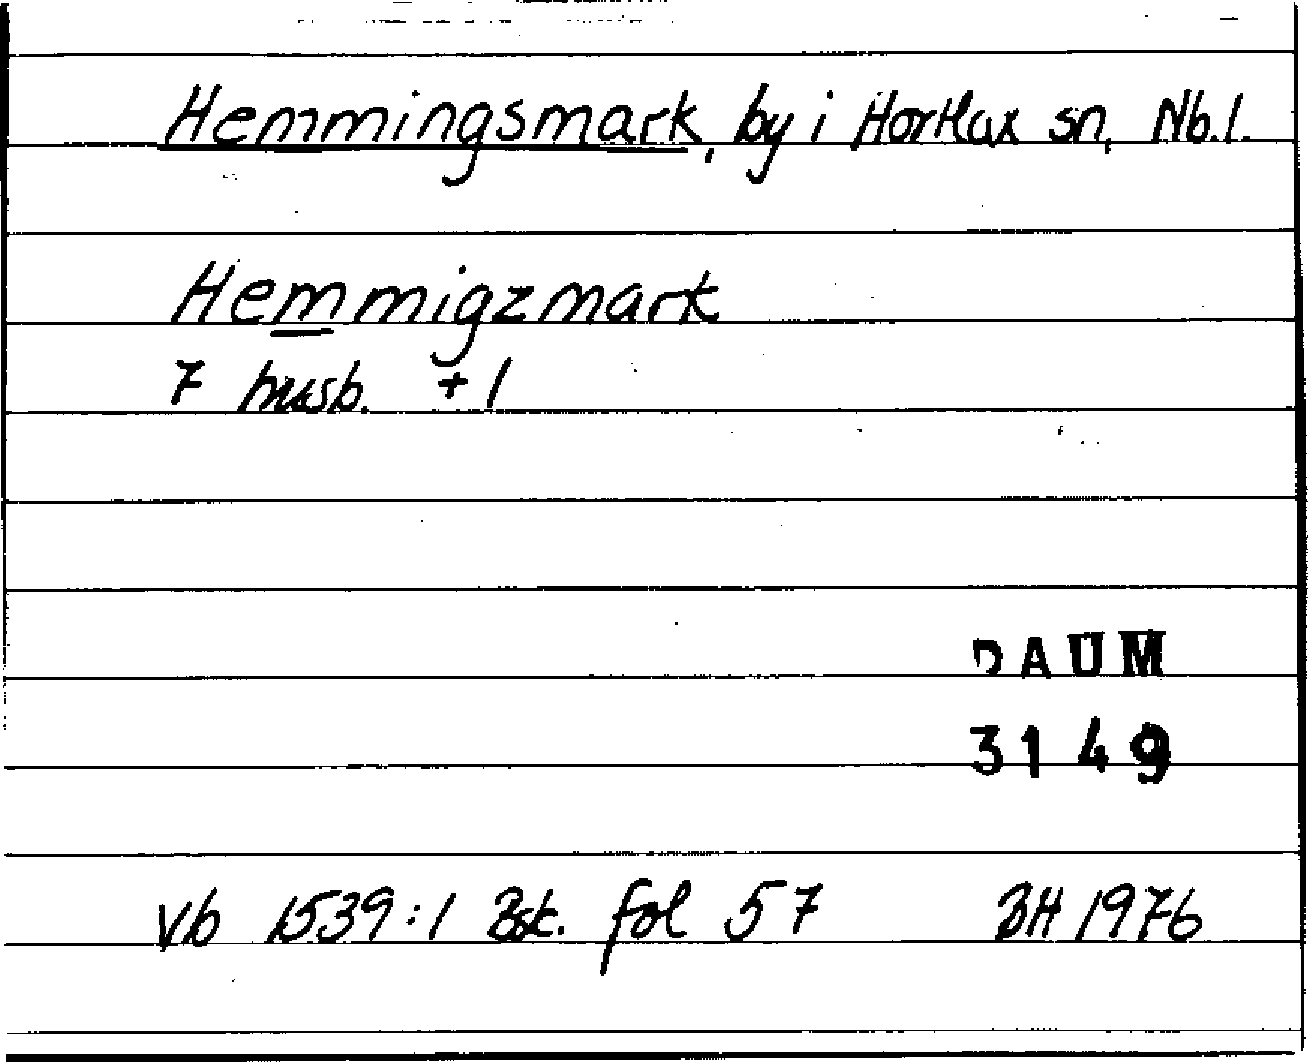 Hemmingsmark, by i Hortlax sn, Nb.l.
Hemmigzmark
7 husb. + 1
DAUM
3149
Vb 1539:1 Bsk. fol 57 BH 1976